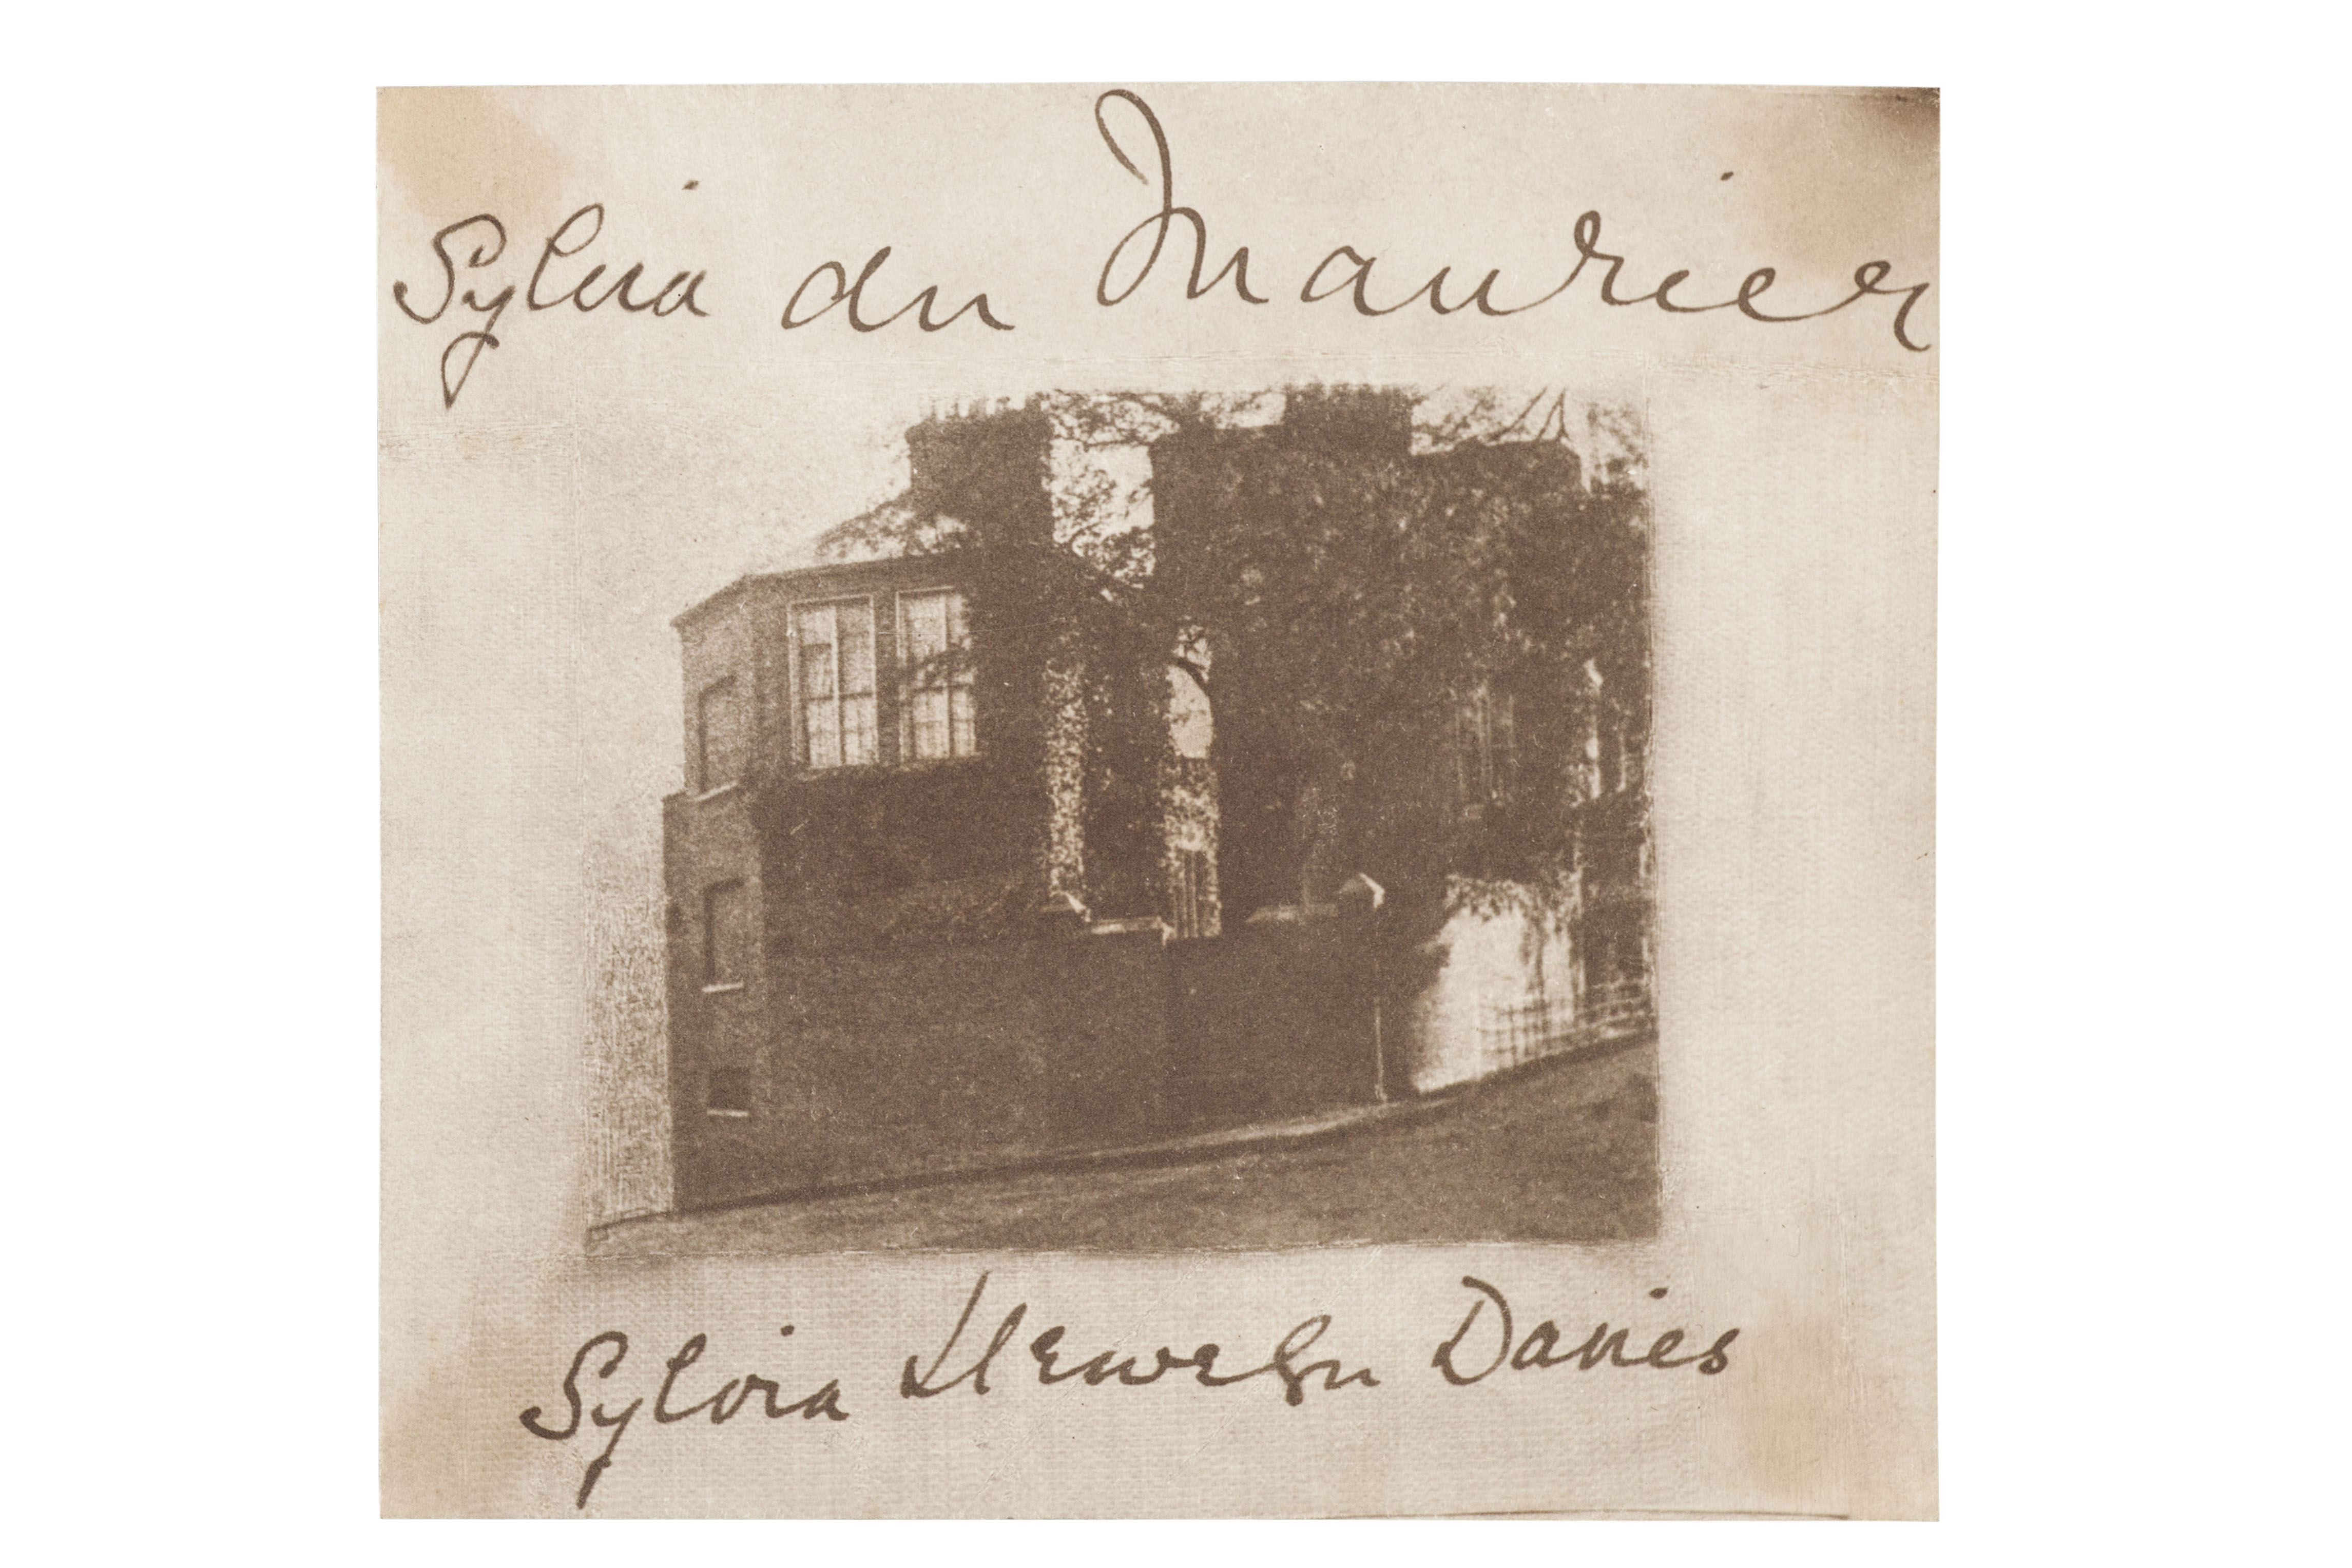 Sylvia du Maurier
Sylvia Llewelyn Davies